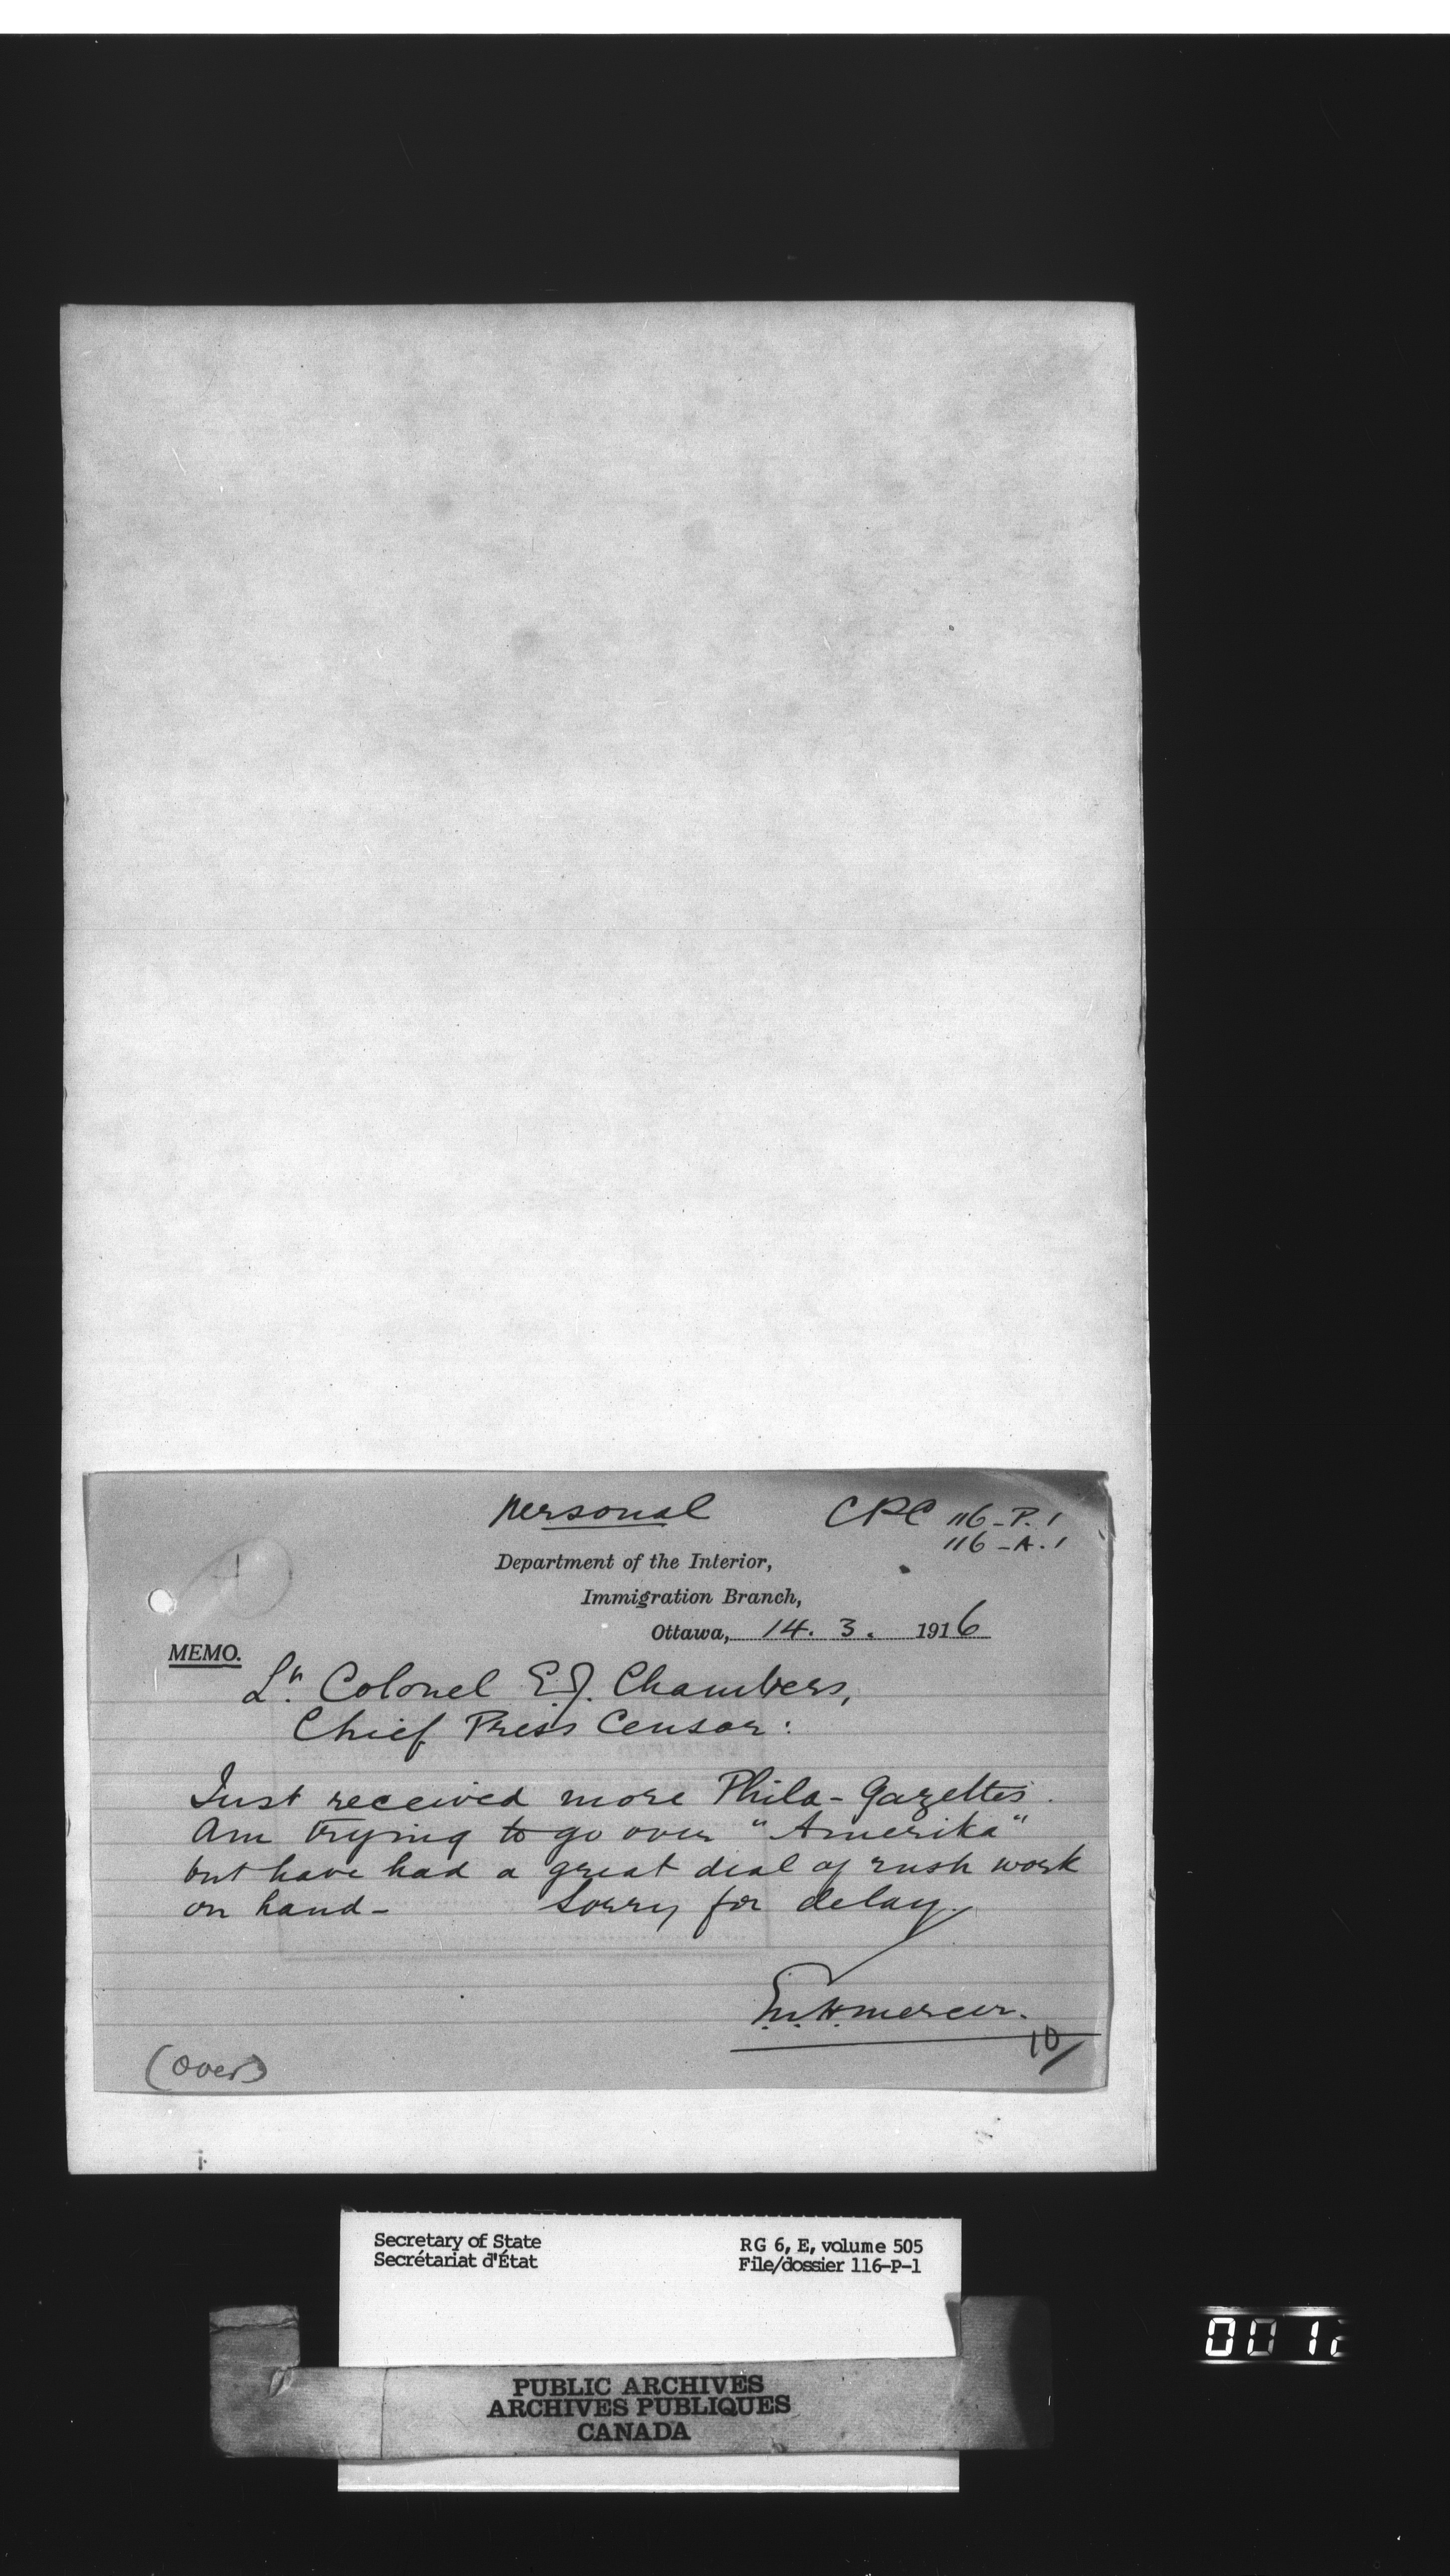 Personal
CPC 116-P.1
116-A.1
Department of the Interior,
Immigration Branch,
Ottawa, 14. 3. 1916
MEMO.
Lt. Colonel E.J. Chambers,
Chief Press Censor:
Just received more Phila-Gazettes.
Am trying to go over "Amerika"
but have had a great deal of rush work
on hand- Sorry for delay.
F.M.H. Mercer.
10/
(over)
Secretary of State
Secrétariat d'État
RG 6, E, volume 505
File/dossier 116-P-1
PUBLIC ARCHIVES
ARCHIVES PUBLIQUES
CANADA
0012